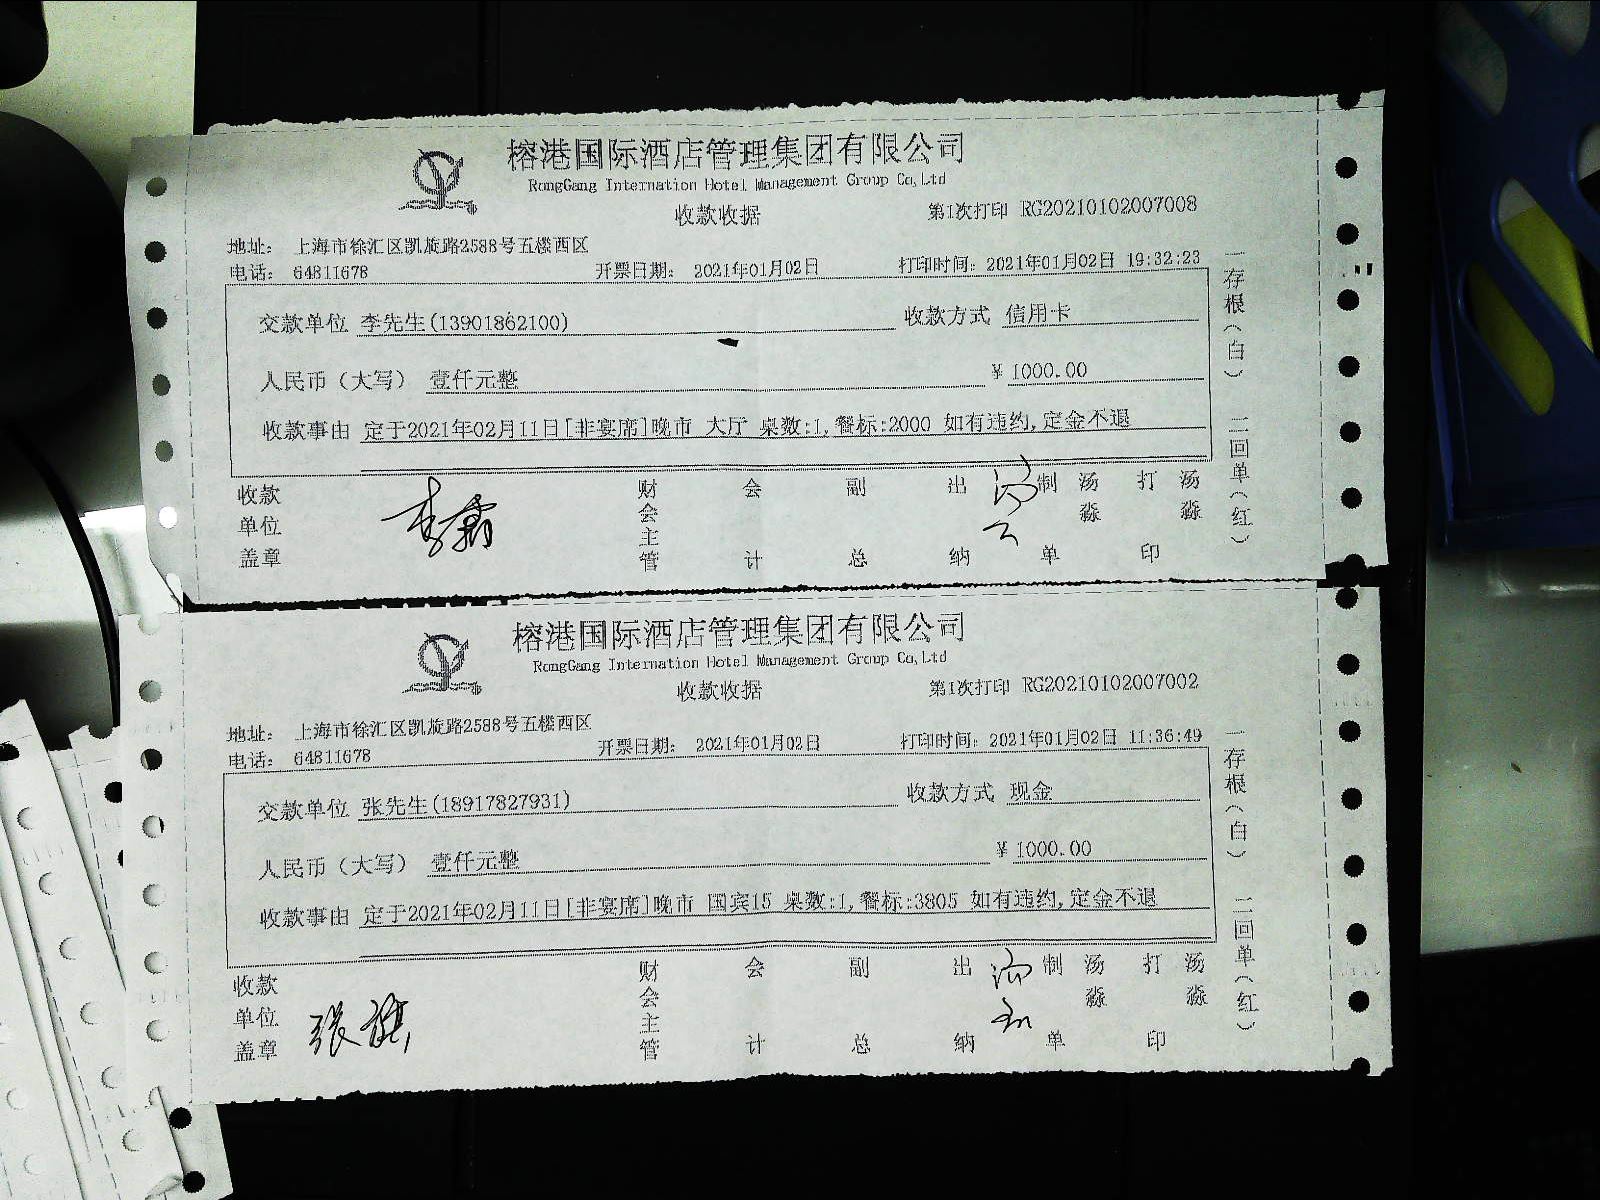 榕港国际酒店管理集团有限公司
RongGang Internation Hotel Management Group Co,Ltd
收款收据 第1次打印 RG20210102007008
地址: 上海市徐汇区凯旋路2588号五楼西区
电话: 64811678 开票日期: 2021年01月02日 打印时间: 2021年01月02日 19:32:23
交款单位 李先生(13901862100) 收款方式 信用卡
人民币（大写） 壹仟元整 ¥ 1000.00
收款事由 定于2021年02月11日[非宴席]晚市 大厅 桌数:1,餐标:2000 如有违约,定金不退
收款单位盖章 财会主管 会计 副总 出纳 制单 汤淼 打印 汤淼
一存根(白) 二回单(红)
榕港国际酒店管理集团有限公司
RongGang Internation Hotel Management Group Co,Ltd
收款收据 第1次打印 RG20210102007002
地址: 上海市徐汇区凯旋路2588号五楼西区
电话: 64811678 开票日期: 2021年01月02日 打印时间: 2021年01月02日 11:36:49
交款单位 张先生(18917827931) 收款方式 现金
人民币（大写） 壹仟元整 ¥ 1000.00
收款事由 定于2021年02月11日[非宴席]晚市 国宾15 桌数:1,餐标:3805 如有违约,定金不退
收款单位盖章 张 财会主管 会计 副总 出纳 制单 汤淼 打印 汤淼
一存根(白) 二回单(红)